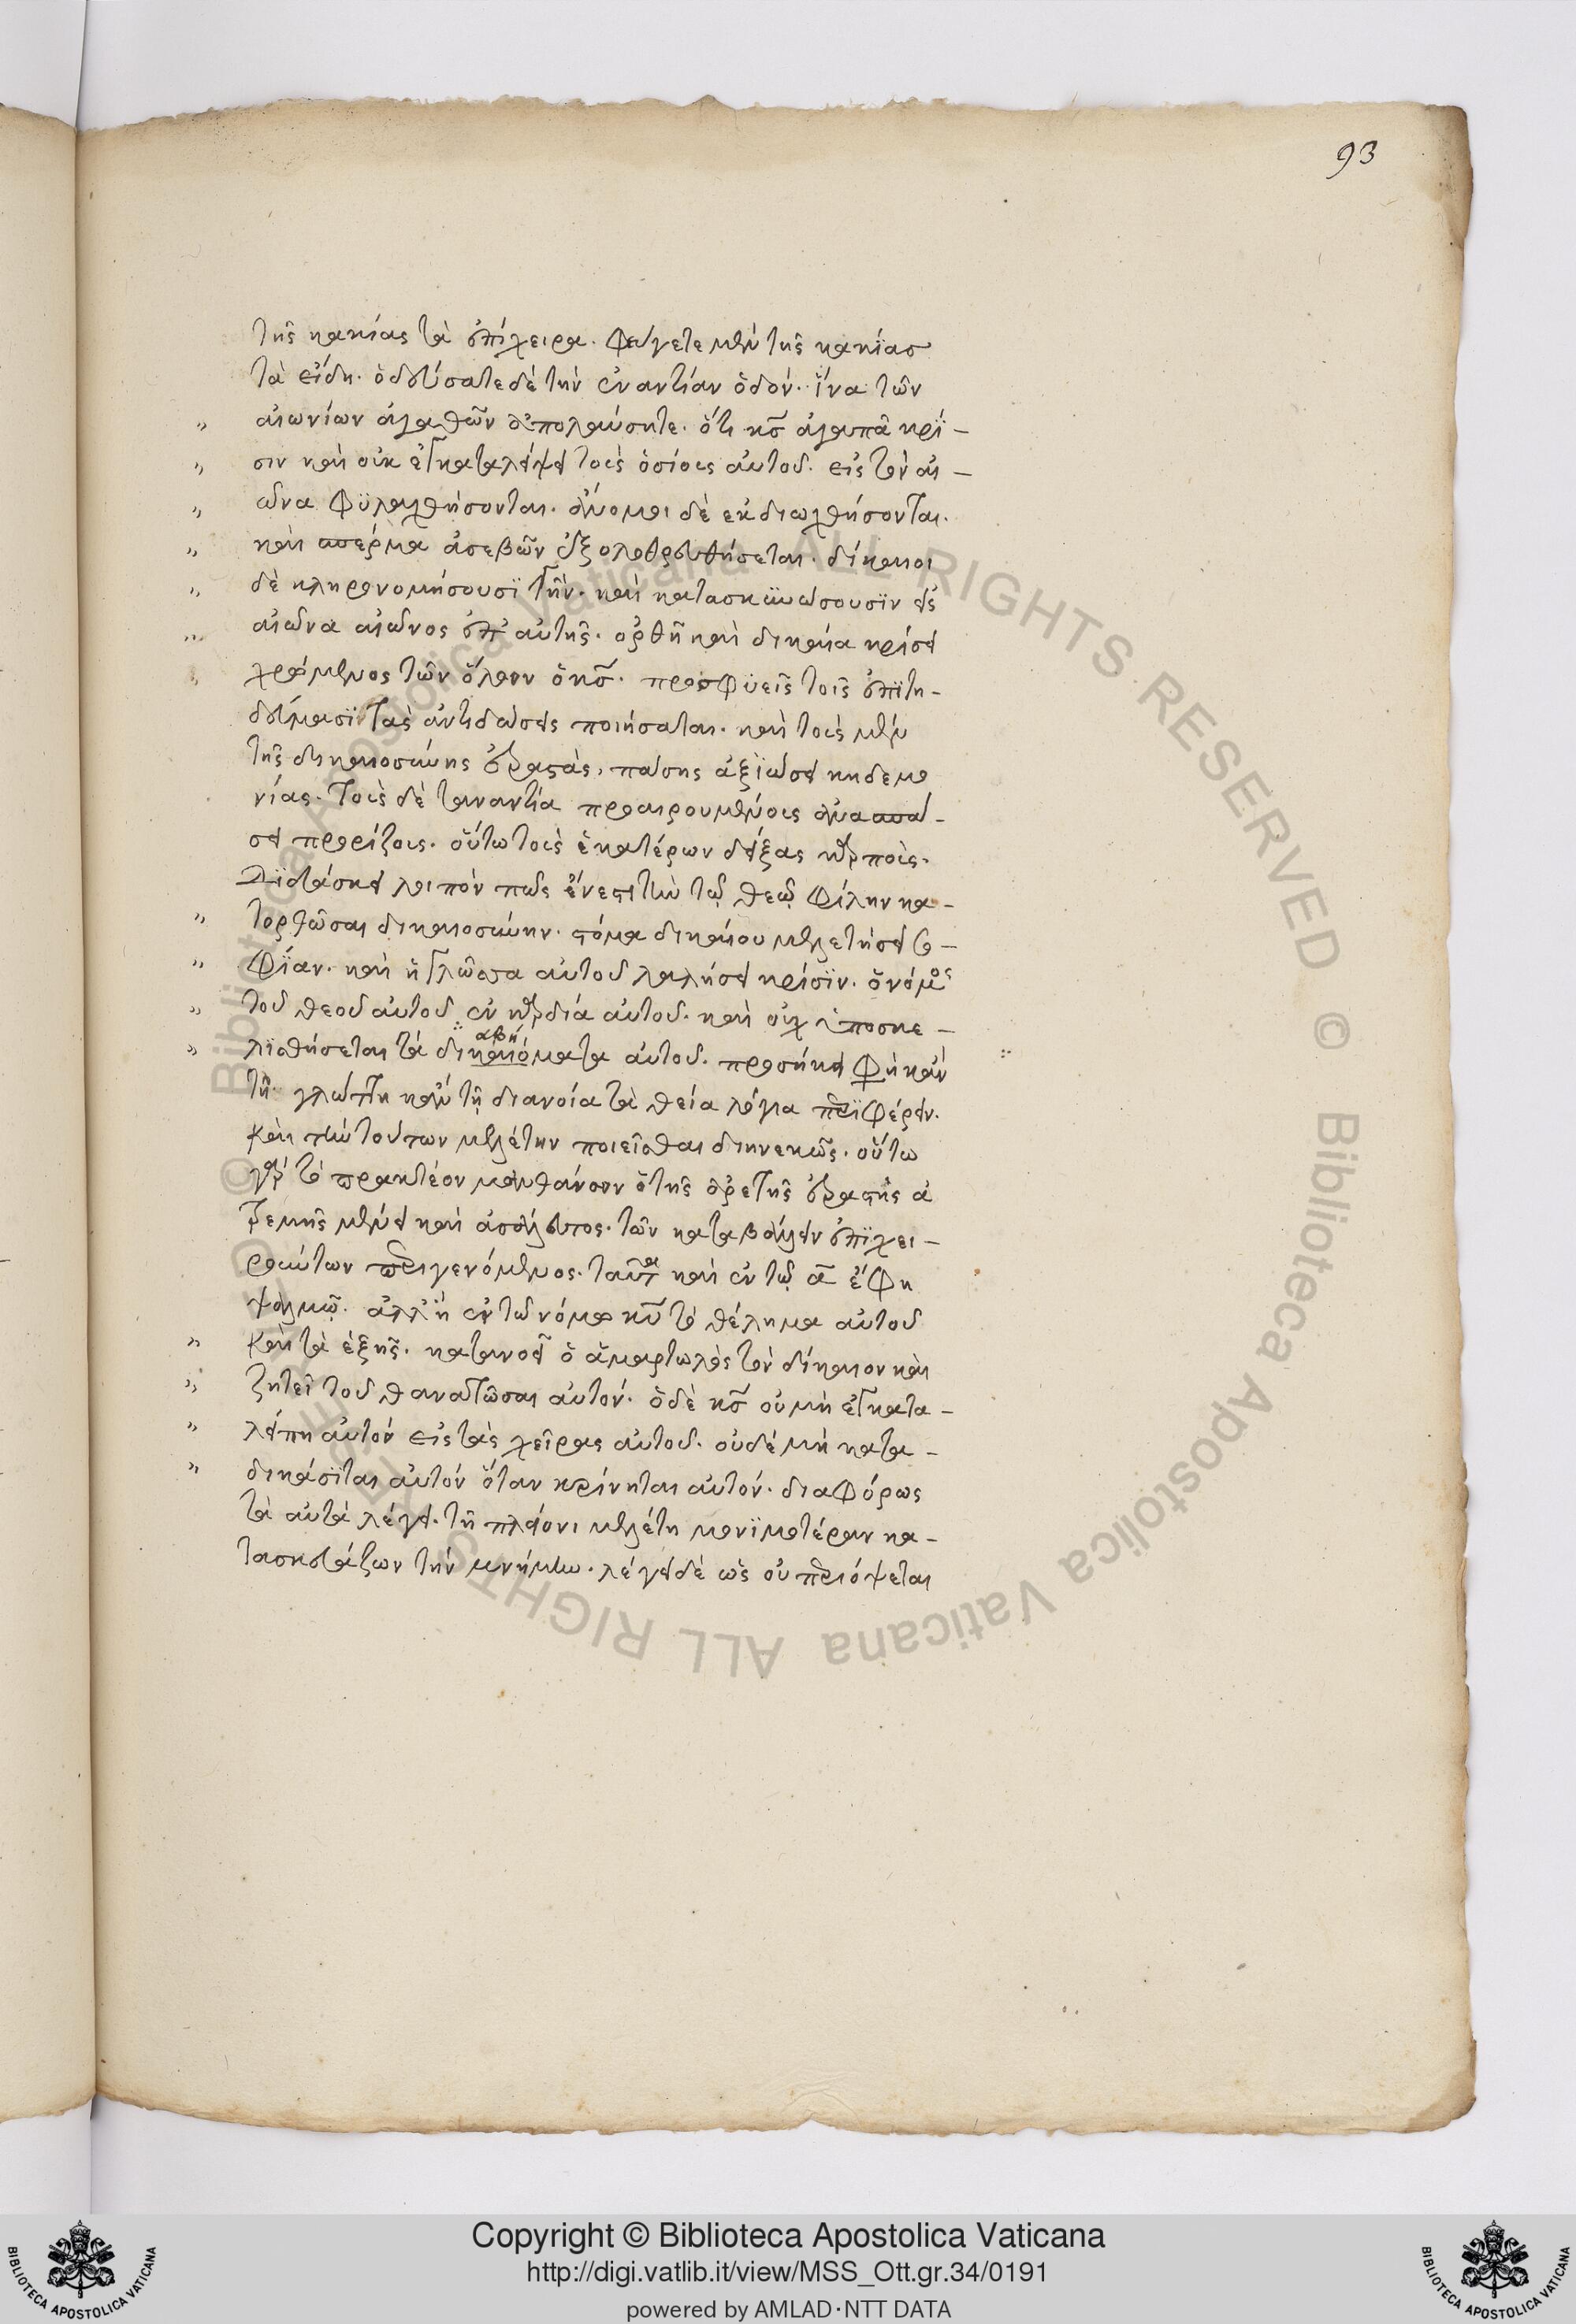 93
τῆς κακίας τὰ ἐπίχειρα. φεύγετε μὲν τῆς κακίας
τὰ εἴδη. ὁδεύσατε δὲ τὴν ἐναντίαν ὁδόν. ἵνα τῶν
αἰωνίων ἀγαθῶν ἀπολαύσητε. ὅτι κς ἀγαπᾶ κρί-
σιν καὶ οὐκ ἐγκαταλείψει τοὺς ὁσίους αὐτοῦ. εἰς τὸν αἰ-
ῶνα φυλαχθήσονται. ἄνομοι δὲ ἐκδιωχθήσονται.
καὶ σπέρμα ἀσεβῶν ἐξολοθρευθήσεται. δίκαιοι
δὲ κληρονομήσουσι γῆν. καὶ κατασκηνώσουσιν εἰς
αἰῶνα αἰῶνος ἐπ' αὐτῆς. ὀρθῆ καὶ δικαία κρίσει
χρώμενος τῶν ὅλων ὁ κς. προσφυεῖς τοῖς ἐπιτη-
δεύμασι τὰς ἀντιδώσεις ποιήσαται. καὶ τοὺς μὲν
τῆς δικαιοσύνης ἐραστὰς, πάσης ἀξιώσει κηδεμο
νίας. τοὺς δὲ τἀναντία προαιρουμένους ἀνασπά-
σει προρίζους. οὕτω τοὺς ἑκατέρων δείξας καρποὺς.
Διδάσκει λοιπὸν πῶς ἔνεστι τὴν τῷ θεῷ φίλην κα-
τορθῶσαι δικαιοσύνην. στόμα δικαίου μελετήσει σο-
φίαν. καὶ ἡ γλῶσσα αὐτοῦ λαλήσει κρίσιν. ὁ νόμος
τοῦ θεοῦ αὐτοῦ ἐν καρδία αὐτοῦ. καὶ οὐχ ὑποσκε-
λισθήσεται τὰ δικαιόματα αὐτοῦ. προσήκει φη κἂν
τῇ γλώττη κἂν τῇ διανοία τὰ θεία λόγια περιφέρειν.
καὶ τὴν τούτων μελέτην ποιεῖσθαι διηνεκῶς. οὕτω
γὰρ τὸ πρακτέον μανθάνων ὁ τῆς ἀρετῆς ἐραστὴς ἀ
τρεμὴς μένει καὶ ἀσάλευτος. τῶν καταβάλλειν ἐπιχει-
ρούντων περιγενόμενος. ταῦτα καὶ ἐν τῷ α ἔφη
ψαλμῷ. ἀλλ' ἢ ἐν τῶ νόμω κυ τὸ θέλημα αὐτοῦ
καὶ τὰ ἑξῆς. κατανοεῖ ὁ ἁμαρτωλὸς τὸν δίκαιον καὶ
ζητεῖ τοῦ θανατῶσαι αὐτόν. ὁ δὲ κς οὐ μὴ ἐγκατα-
λείπη αὐτὸν εἰς τὰς χεῖρας αὐτοῦ. οὐδὲ μὴ κατα-
δικάσηται αὐτόν ὅταν κρίνηται αὐτόν. διαφόρως
τὰ αὐτὰ λέγει. τῆ πλείονι μελέτη μονιμοτέραν κα-
τασκευάζων τὴν μνήμην. λέγει δὲ ὡς οὐ περιόψεται
Copyright © Biblioteca Apostolica Vaticana
http://digi.vatlib.it/view/MSS_Ott.gr.34/0191
powered by AMLAD·NTT DATA
BIBLIOTECA APOSTOLICA VATICANA
BIBLIOTECA APOSTOLICA VATICANA
© Biblioteca Apostolica Vaticana ALL RIGHTS RESERVED © Biblioteca Apostolica Vaticana ALL RIGHTS RESERVED